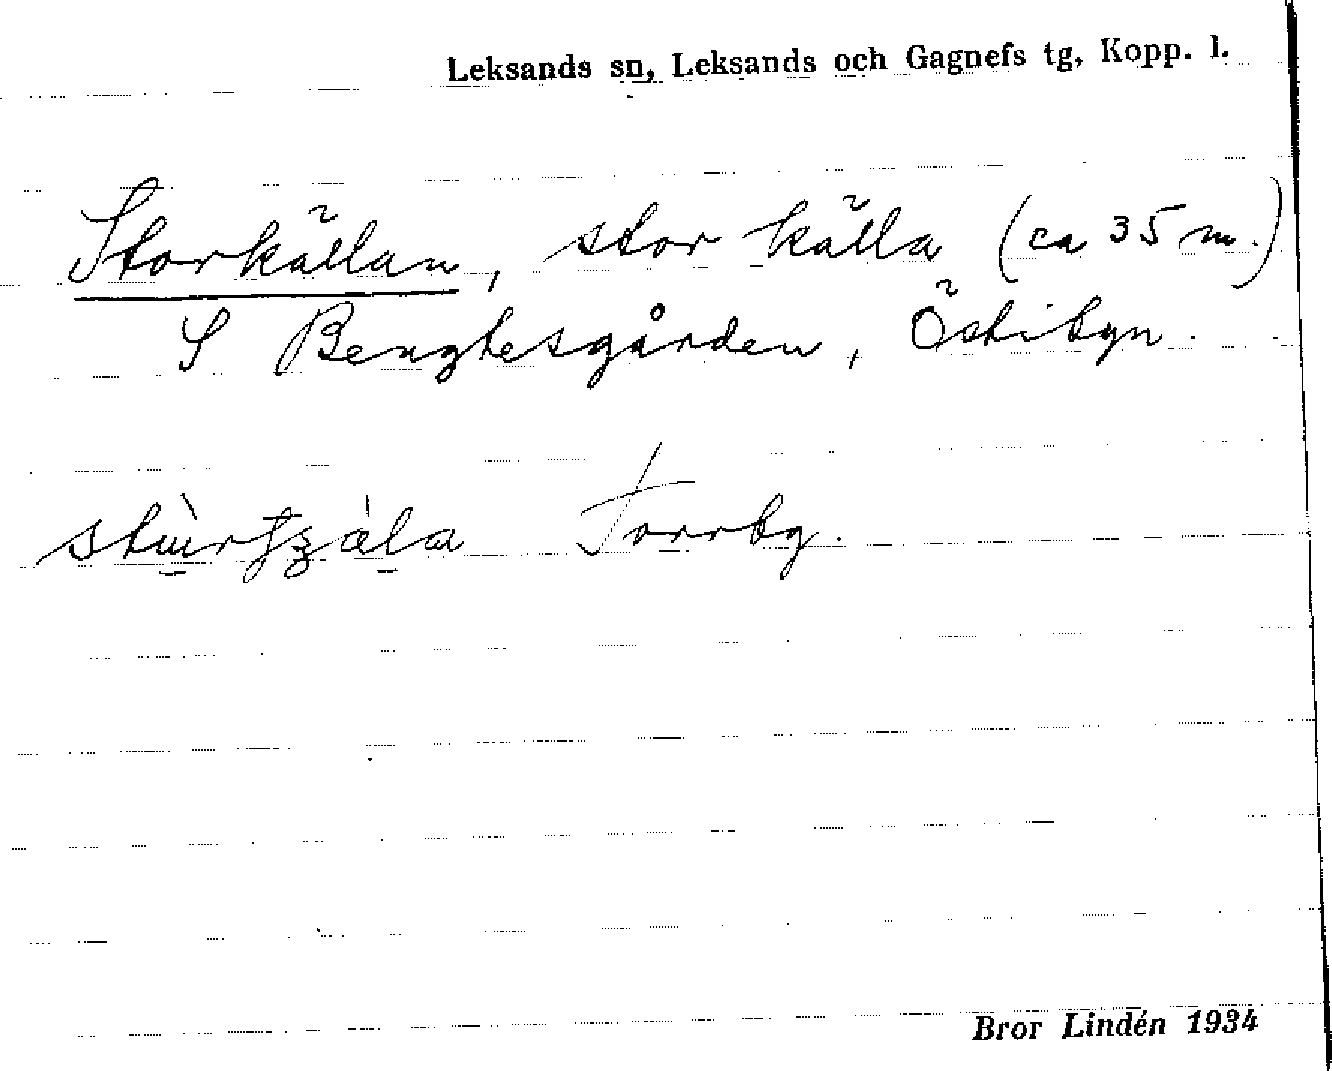 Leksands sn, Leksands och Gagnefs tg, Kopp. l.
Storkällan, stor källa (ca 35 m.)
S Bengtesgården, Östibyn.
Torrby.
Bror Lindén 1934